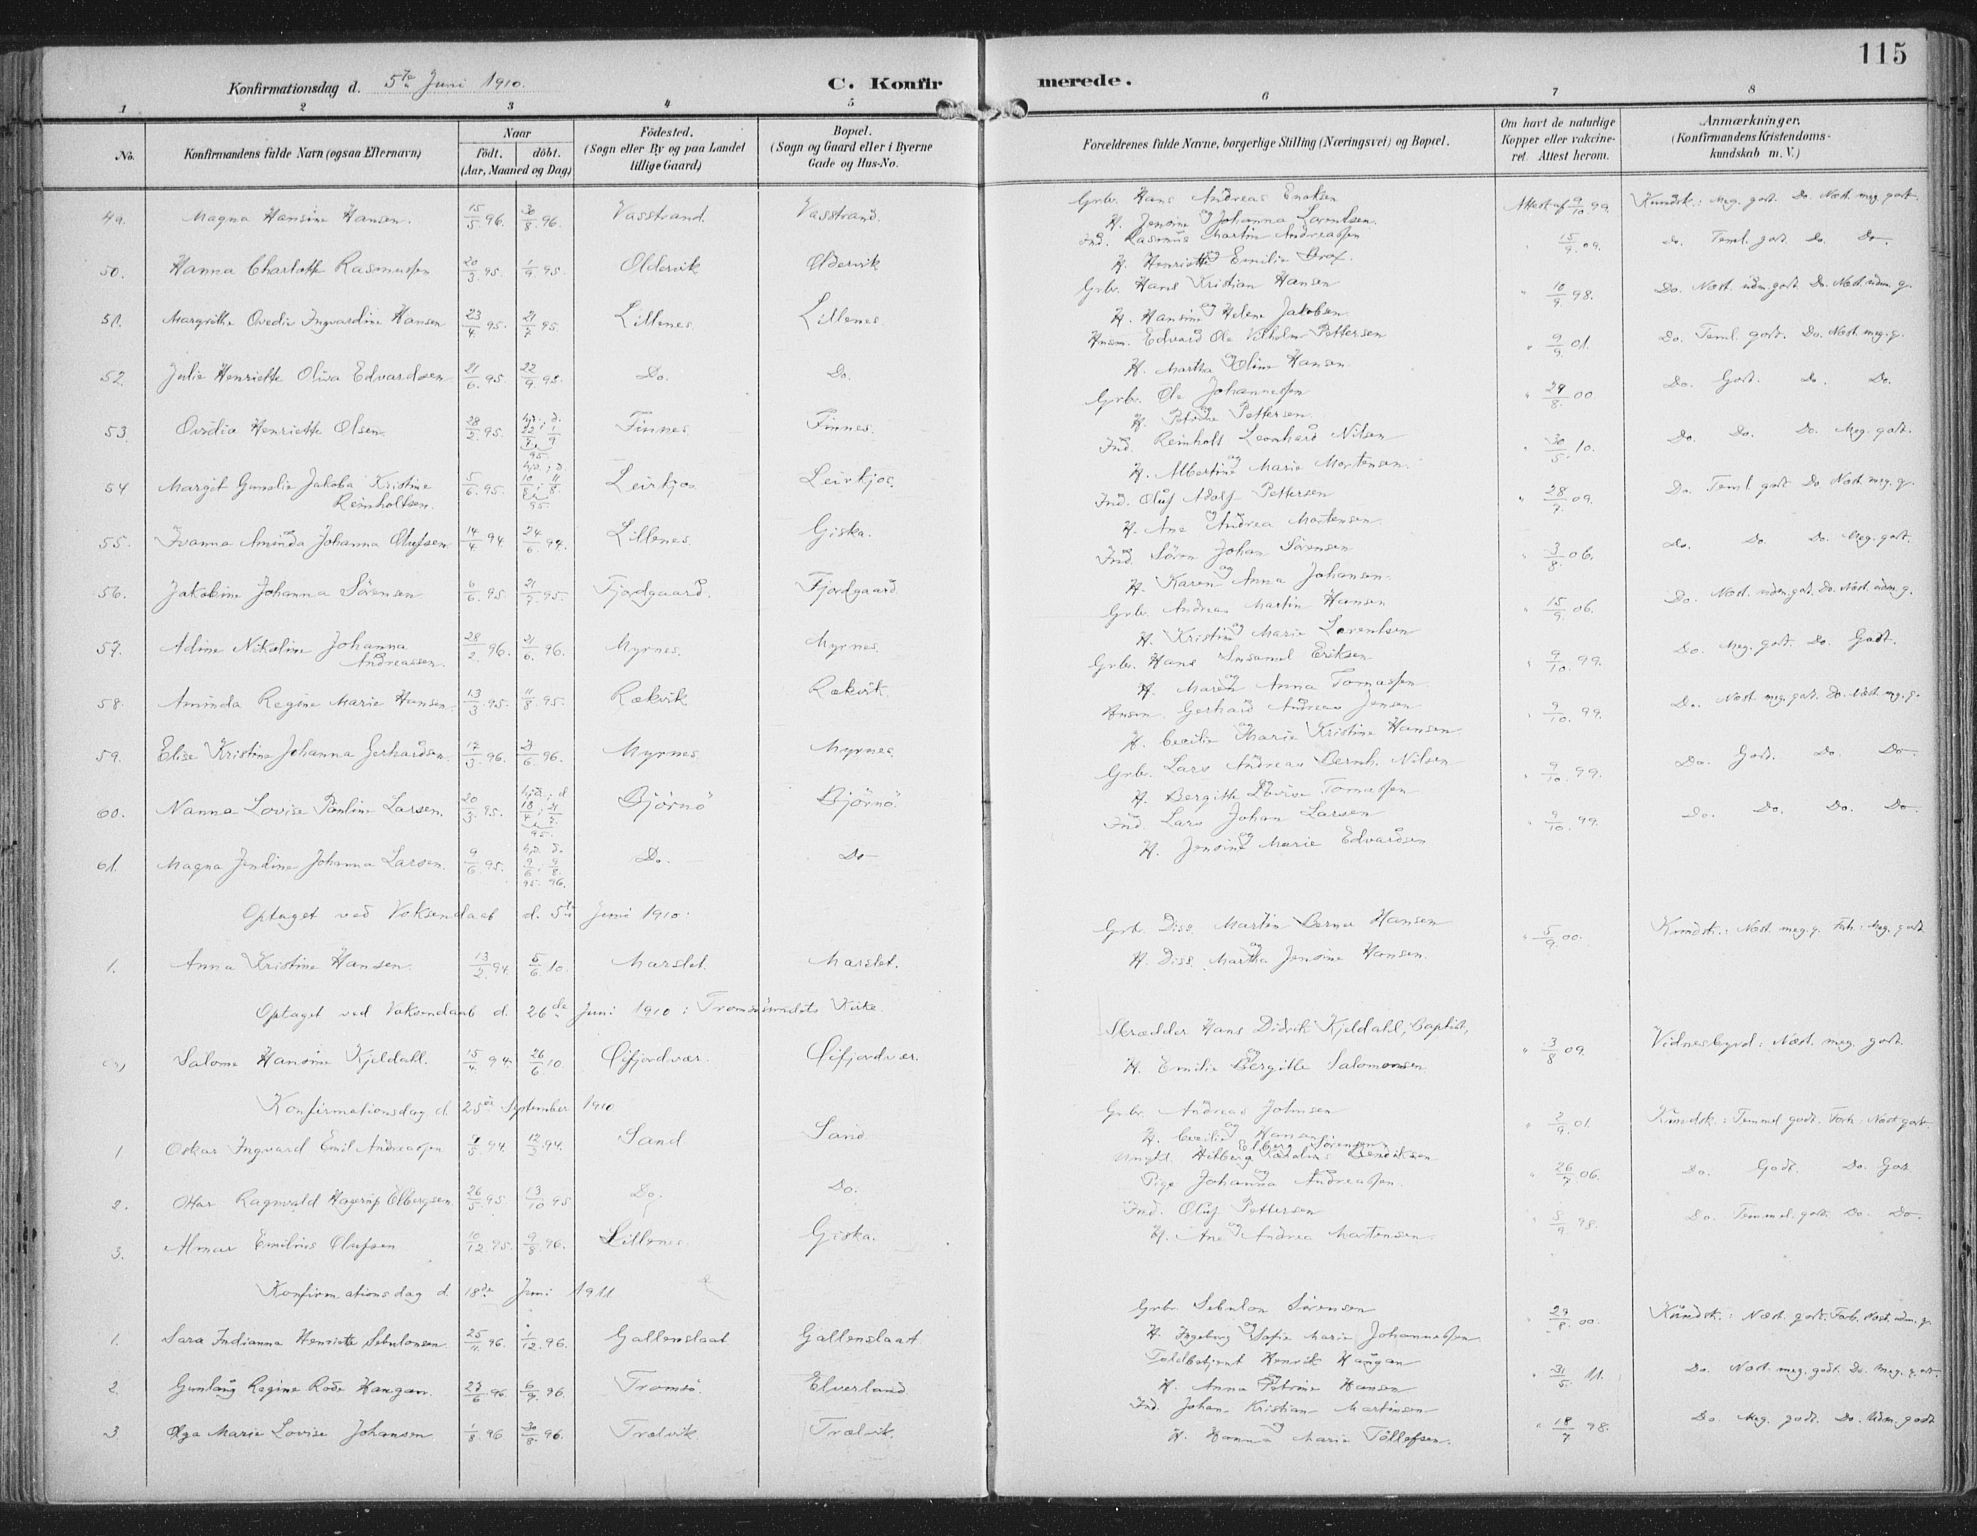 115
Konfirmationsdag d. 5te Juni 1910. C. Konfirmerede.
1 2 3 4 5 6 7 8
No. Konfirmandens fulde Navn (ogsaa Efternavn) Naar födt. döbt. (Aar, Maaned og Dag) Födested. (Sogn eller By og paa Landet tillige Gaard) Bopæl. (Sogn og Gaard eller i Byerne Gade og Hus-No. Forældrenes fulde Navne, borgerlige Stilling (Næringsvei) og Bopæl. Om havt de naturlige Kopper eller vaccineret. Attest herom. Anmærkninger. (Konfirmandens Kristendomskundskab m. V.)
49. Magna Hansine Hansen. 15/5 96. 30/8 96. Vasstrand. Vasstrand. Grbr. Hans Andreas Enoksen og H. Jensine Johanna Lorentsen. Attest af 9/10 99. Kundsk.: Meg. godt. Do. Næst. meg. godt.
50. Hanna Charlotte Rasmussen 20/3 95. 1/9 95. Oldervik Oldervik Ind. Rasmus Martin Andreassen og H. Henriette Emilie Brox. " 15/9 09. Do. Teml. godt. Do. Do.
51. Margrethe Ovedie Ingvardine Hansen 23/4 95. 21/7 95. Lillenes Lillenes Grbr. Hans Kristian Hansen og H. Hansine Helene Jakobsen. " 10/9 98. Do. Næst. udm. godt. Do. Næst udm. g.
52. Julie Henriette Olisa Edvardsen 21/6 95. 22/9 95. Do. Do. Husm. Edvard Ole Vilhelm Pettersen og H. Martha Oline Hansen. " 9/9 01. Do. Teml. godt. Do. Næst. meg. g.
53. Ovidia Henriette Olsen. 28/2 95. hjd. 22/4; d. 1/9 95. Finnes. Finnes. Grbr. Ole Johannessen og H. Petrine Pettersen. " 29/8. 00. Do. Godt. Do. Do.
54 Margit Gunelie Jakoba Kristine Reinholtsen. 5/6 95. hjd. 10/6; d. 11/8 95. Leirkjos. Leirkjos. Ind. Reinholt Leonhard Nilsen og H. Albertine Marie Mortensen. " 30/5. 10. Do. Do. Do. Meg. godt.
55. Ivanna Aminda Johanna Olufsen 14/4 94 24/6 94. Lillenes. Giska. Ind. Oluf Adolf Pettersen og H. Ane Andrea Mortensen. " 28/7. 09. Do. Teml. godt Do. Næst meg. g.
56. Jakobine Johanna Sörensen 6/6 95. 21/7 95. Fjordgaard. Fjordgaard. Ind. Sören Johan Sörensen og H. Karen Anna Johansen. " 3/8. 06. Do. Do. Do. Meg. godt.
57. Adine Nikoline Johanna Andreassen. 28/2 96. 21/6. 96. Myrnes. Myrnes. Grbr. Andreas Martin Hansen og H. Kristine Marie Lorentsen " 15/9. 06. Do. Næst. udm. godt. Do. Næst. udm. g.
58. Aminda Regine Marie Hansen 13/3 95. 11/8 95. Rækvik Rækvik. Grbr. Hans Eriksen og H. Maren Anna Tomassen. " 9/10. 99. Do. Meg. godt. Do. Godt.
59. Elise Kristine Johanna Gerhardsen. 17/3 96. 21/6 96. Myrnes. Myrnes. Husm. Gerhard Andreas Jensen og H. Cecilie Marie Kristine Hansen " 9/10. 99. Do. Næst meg. godt. Do. Næst. mg. g.
60. Nanna Lovise Pauline Larsen. 20/3. 95. hjd. 18/4; d. 95. Björnö Björnö. Grbr. Lars Andreas Bernh. Nilsen og H. Bergitte Lovise Tomassen " 9/10. 99. Do. Godt. Do. Do.
61. Magna Jendine Johanna Larsen. 9/6 95. hjd. d. 9/6 95. 9/8 96. Do. Do. Ind. Lars Johan Larsen og H. Jensine Marie Edvardsen " 9/10. 99. Do. Do. Do. Do.
Optaget ved Voksendaab d. 5te Juni 1910:
1. Anna Kristine Hansen. 13/2 94. 5/6 10. Marslet. Marslet. Grb. Diss. Martin Berner Hansen og H. Diss. Martha Jensine Hansen. " 5/9. 00. Kundsk.: Næst. meg. g. Forh.: Meg. godt
Optaget ved Voksendaab d. 26de Juni 1910: Tromsösundets Kirke.
Salome Hansine Kjeldahl. 15/4 94. 26/6 10. Öifjordvær. Öifjordvær. Skrædder Hans Didrik Kjeldahl, Baptist, og H. Emilie Bergitte Salomonsen. " 3/8 09. Vidnesbyrd: Næst. meg. godt.
Konfirmationsdag d. 25de September 1910
1 Oskar Ingvard Emil Andreassen 9/5 94. 12/3 94. Sand. Sand. Grbr. Andreas Johnsen og H. Cecilie Hansen. " 2/9. 01. Kundsk.: Temmel. godt. Forh. Næst godt.
2. Ottar Ragnvald Hagerup Elbergsen. 26/5 95. 13/10 95 Do. Do. Ungk. Hilberg Bendiksen og Pige Johanna Andreassen. " 26/7 06. Do. Godt. Do. God
3. Almar Emilius Olufsen 10/12. 95. 9/8. 96. Lillenes. Giska. Ind. Oluf Pettersen og H. Ane Andrea Mortensen. " 5/9 98. Do. Temmel. godt. Do. Do.
Konfirmationsdag d. 18de Juni 1911
1. Sara Indianna Henriette Sebulonsen. 25/4 96. 1/12. 96. Gallenslaat Gallenslaat. Grbr. Sebulon Sörensen og H. Ingeborg Sofie Marie Johannessen. " 29/8. 00. Kundsk.: Næst. godt. Forh. Næst. udm. g.
2. Gunlaug Regine Rode Haugan. 27/6 96. 6/9. 96. Tromsö. Elverland Toldbetjent Henrik Haugan og H. Anna Petrine Hansen " 31/5. 11. Do. Næst. meg. godt. Do. Meg. godt.
3 Olga Marie Lovise Johansen. 1/8. 96 30/8. 96. Trælvik. Trælvik. Ind. Johan Kristian Martinsen og H. Hanna Marie Tollefsen. " 18/7 98. Do. Meg. godt. Do. Udm. godt